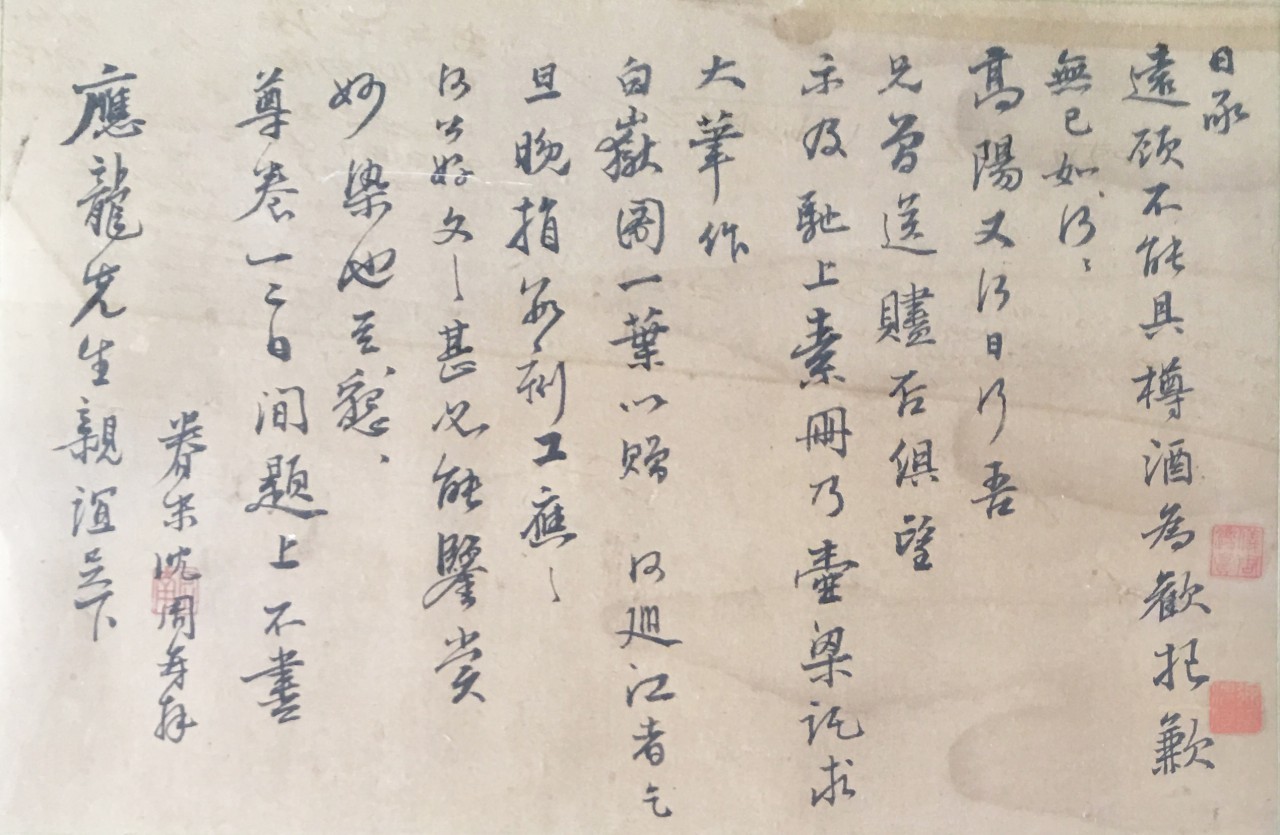 日承
遠顧不能具樽酒為歡抱歉
無已如何〻
高陽又何日行吾
兄曾送贐否俱望
示及馳上素冊乃壺梁託求
大筆作
白嶽圖一葉以贈何巡江者乞
旦晚指教刻工應〻
何公好文〻甚必能鑒賞
妙染也至懇〻
尊卷一二日間題上不盡
眷末沈周再拜
應龍先生親誼足下